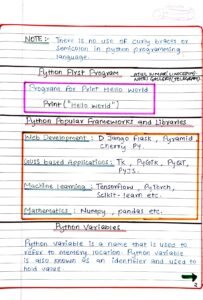 NOTE:- There is no use of curly braces or
Semicolon in python programming
language.
Python First Program
Program for Print Hello World
Print ("Hello World")
Python Popular Frameworks and Libraries
Web Development : DJango Flask, Pyramid
Cherry Py.
GUIs based Applications: Tk, PyGTK, PyQT,
PyJS.
Machine Learning : Tensorflow, PyTorch,
Scikit-learn etc.
Mathematics : Numpy, pandas etc.
Python Variables
Python variable is a name that is used to
refer to memory location. Python variable
is also known as an identifier and used to
hold value